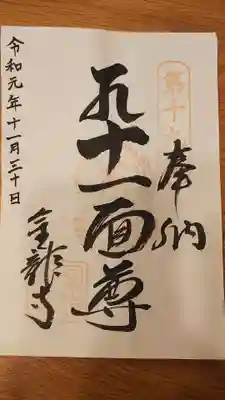 奉納
十一面尊
金龍寺
令和元年十一月三十日
第十